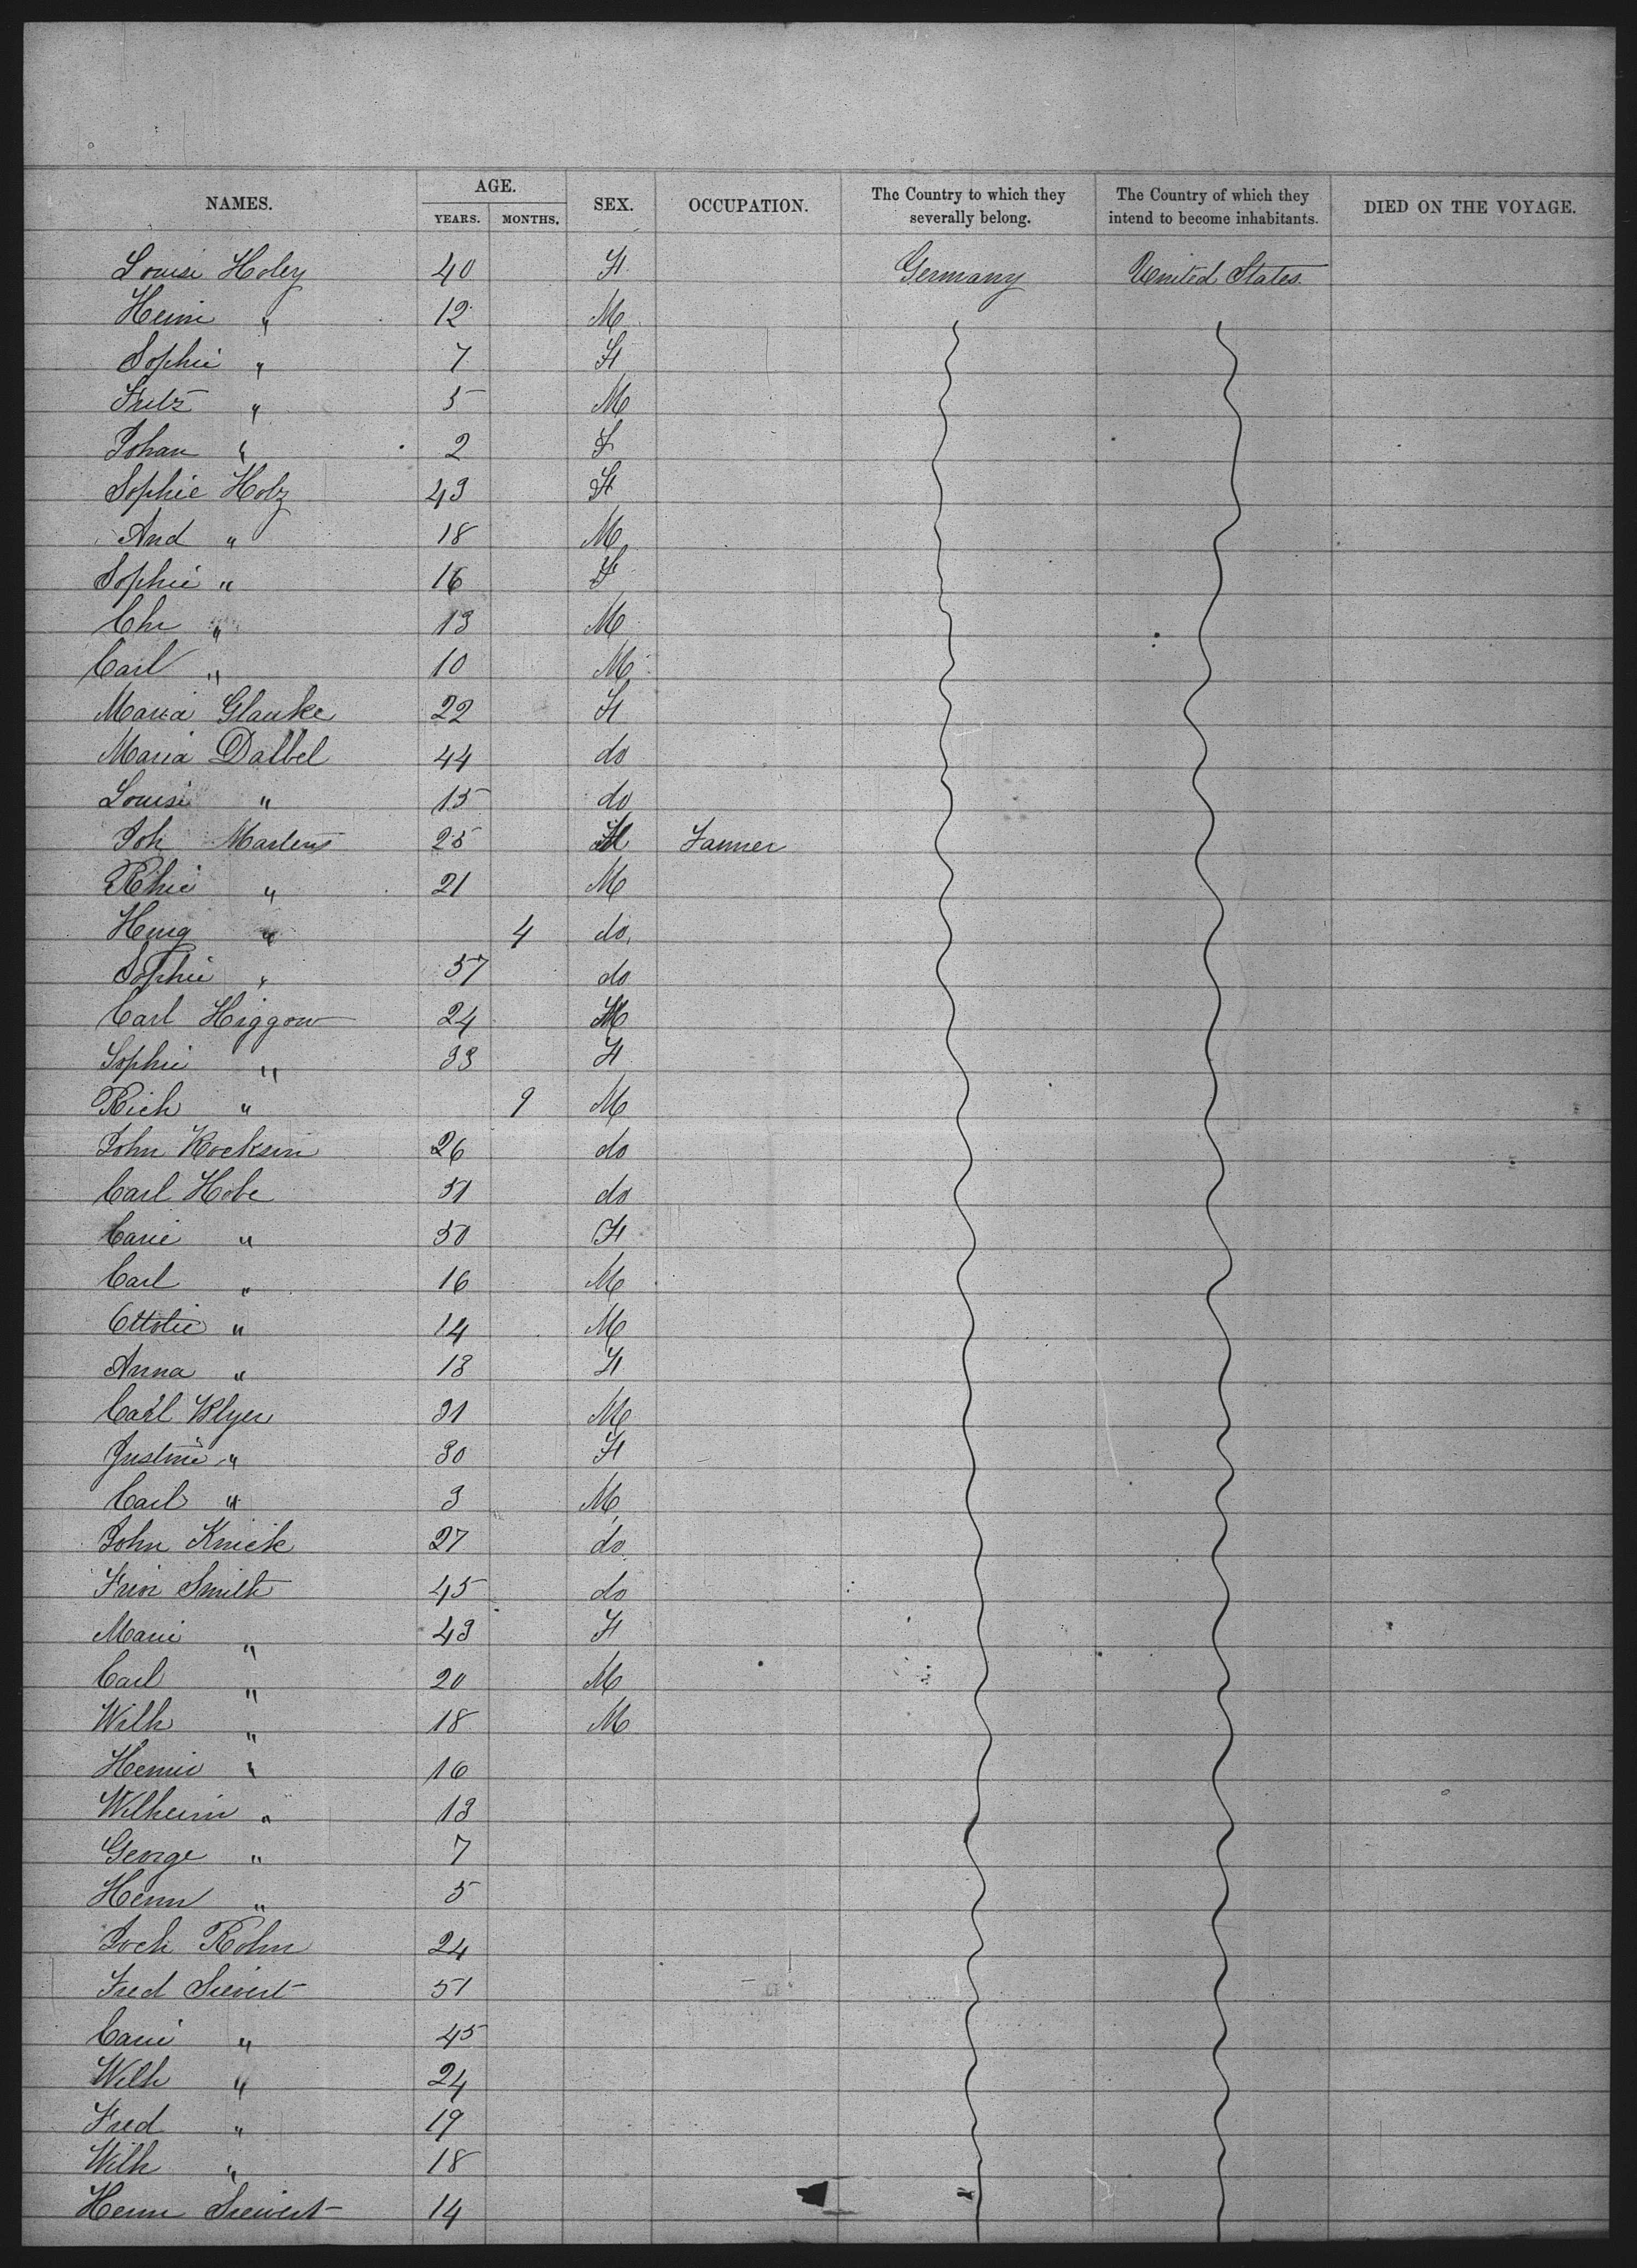 NAMES. AGE. SEX. OCCUPATION. The Country to which they severally belong. The Country of which they intend to become inhabitants. DIED ON THE VOYAGE.
YEARS. MONTHS.
Louise Holey 40 F Germany United States.
Heini " 12 M
Sophie " 7 F
Fritz " 5 M
Johan " 2 F
Sophie Holz 43 F
And " 18 M
Sophie " 16 F
Chr " 13 M
Carl " 10 M
Maria Glauke 22 F
Maria Dalbel 44 do
Louise " 15 do
Joh Martens 25 M Farmer
" 21 M
" 4 do
Sophie " 57 do
Carl Higgow 24 M
Sophie " 33 F
Rich " 9 M
John Rocksin 26 do
Carl Hobe 51 do
Carie " 50 F
Carl " 16 M
Ottolie " 14 M
Anna " 13 F
Carl Klyer 31 M
Justine " 30 F
Carl " 3 M
John Knick 27 do
Smith 45 do
Marie " 43 F
Carl " 20 M
Wilh " 18 M
" 16
Wilheim " 13
George " 7
Henn " 5
Joch Rohn 24
Fred Sievert 51
Carie " 45
Wilh " 24
Fred " 19
Wilh " 18
Henn Sievert 14